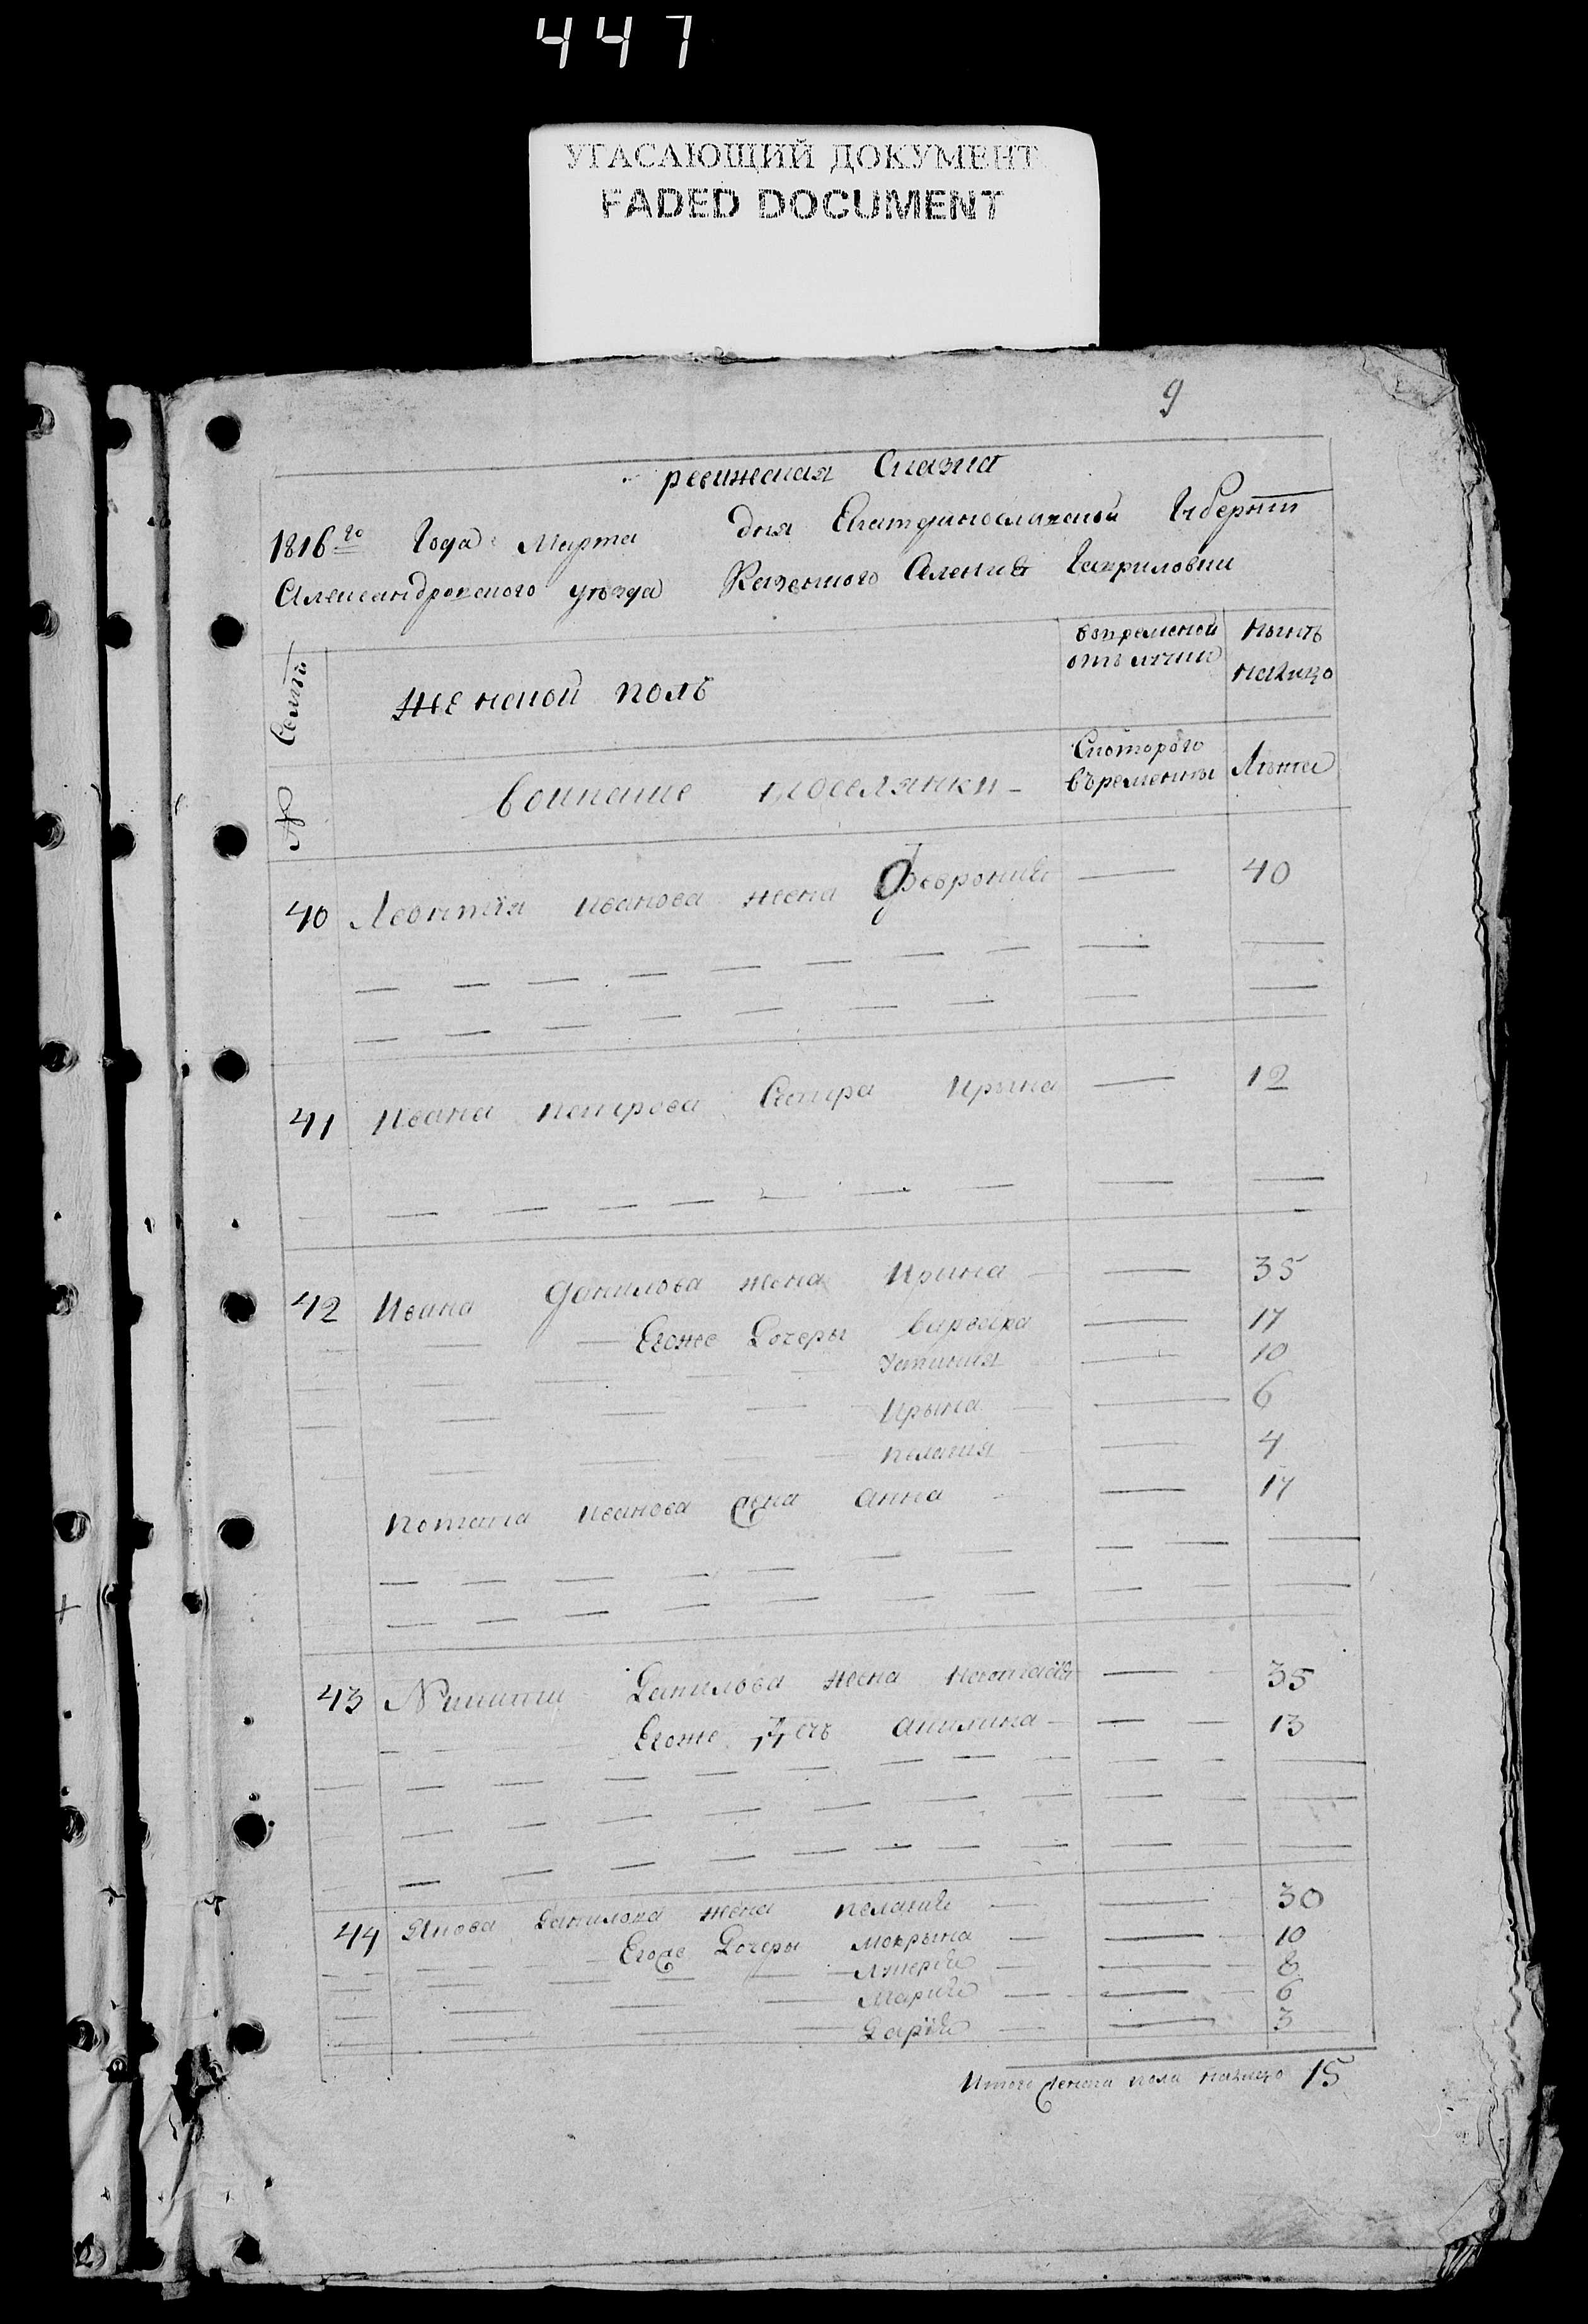 447
УГАСАЮЩИЙ ДОКУМЕНТ
FADED DOCUMENT
9
ревижская Сказка
1816го Года Марта дня Екатеринославской Губернїи
Александровского уезда Казенного Селения Гавриловки
№ Семьи
женской полъ
вовременой отълучки
ныне налицо
воинские поселянки
Скоторого въремены
Лета
40 Леонтия Иванова жена Феврония 40
41 Ивана петрова Сестра Ирына 12
42 Ивана Данилова жена Ирина 35
Егоже Дочеры варвара 17
10
Ирына 6
пелагия 4
потапа Иванова жена анна 17
43 Никиты Данилова жена настасия 35
Егоже дочь акилина 13
44 Якова Данилова жена пелагия 30
Егоже Дочеры мокрына 10
Лукерия 8
Мария 6
Дария 3
Итого женска пола налицо 15